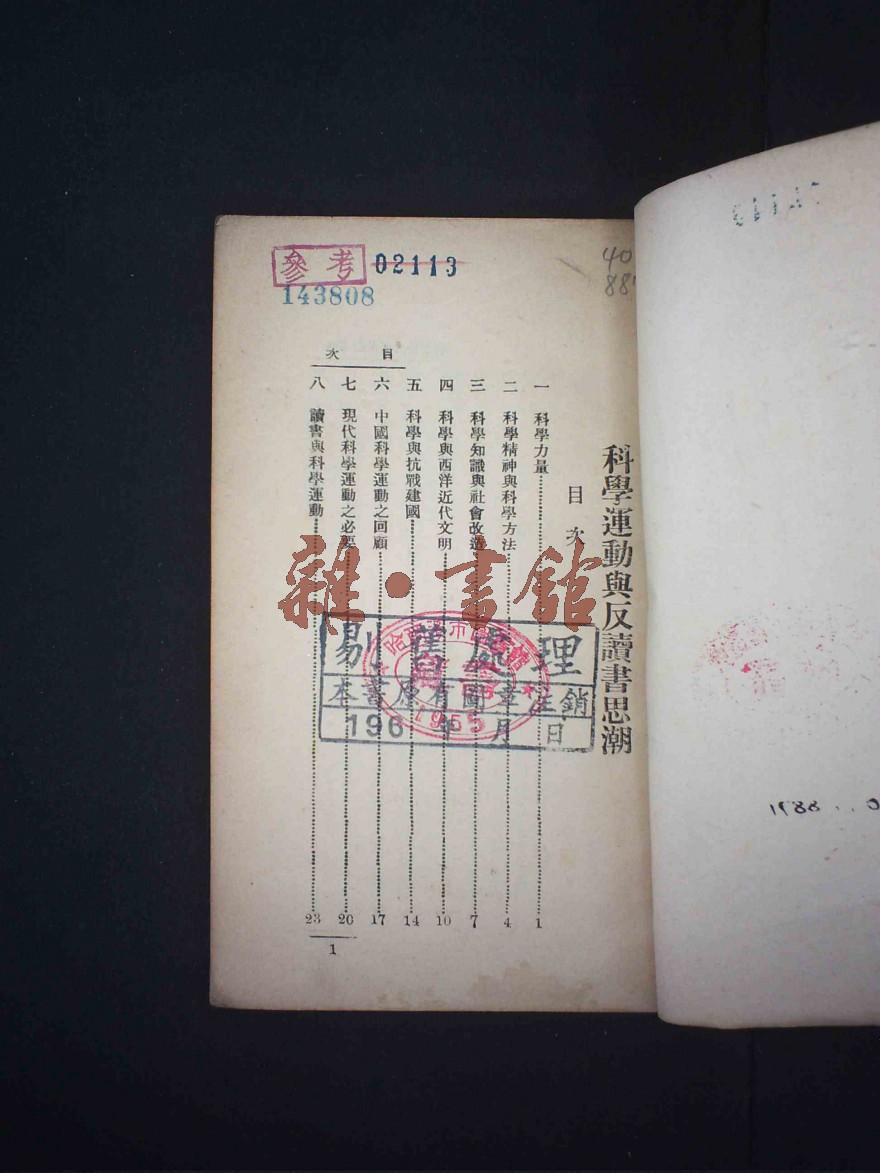 科學運動與反讀書思潮
目次
一 科學力量 1
二 科學精神與科學方法 4
三 科學知識與社會改造 7
四 科學與西洋近代文明 10
五 科學與抗戰建國 14
六 中國科學運動之回顧 17
七 現代科學運動之必要 20
八 讀書與科學運動 23
目次
1
參考
02113
143808
40
雜·書館
處理
本書原有圖章注銷
196 年 月 日
1955